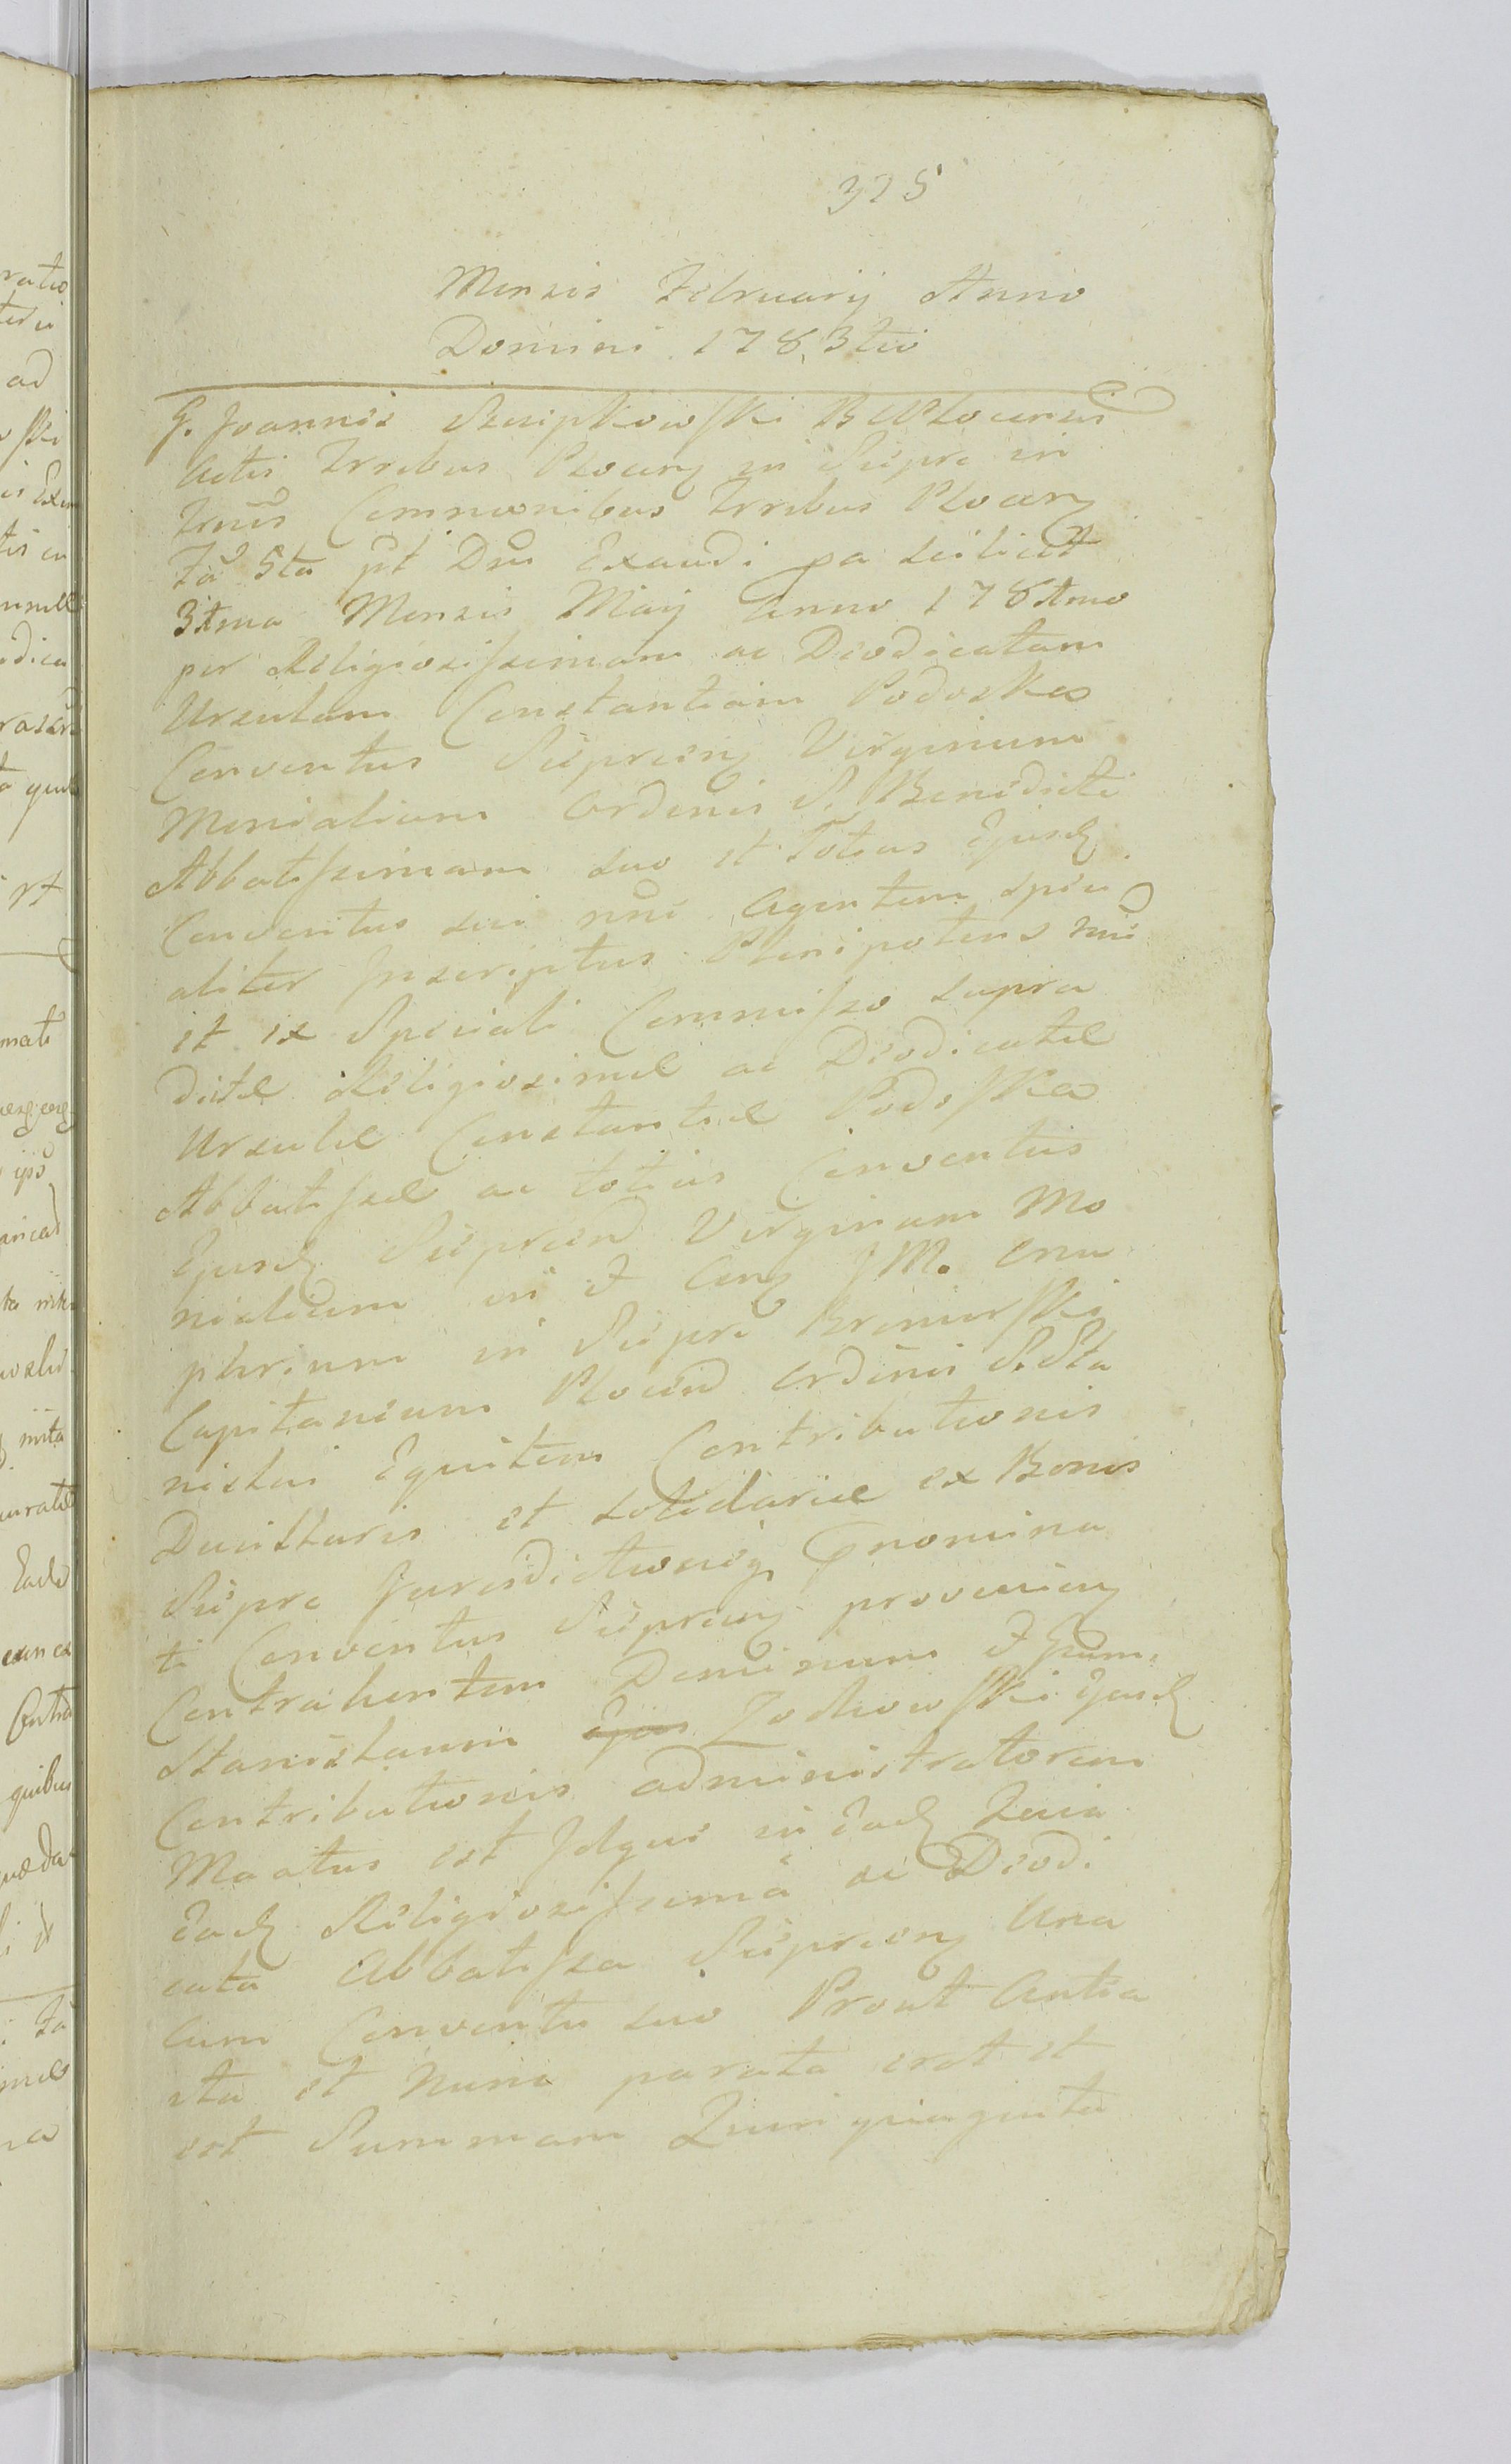 325
Mensis Februarij Anno
Domini 1783tio
G. Joannes SzczipkowSki B Wlocensis
Actis Trribus Plocen in Sierpc in
Trnis Connvonibus Trribus Plocen
Fâ 5ta pt Dm Exaudi pa scilicet
31ma Mensis Maij Anno 1781mo
per Religiosissimam ac Deodicatam
Ursulam Constantiam Podoska
Conventus Sieprcien Virginum
Monialium Ordinis S. Benedicti
Abbatissimam suo et Totius Ejusd
Conventus sui nni Agentem spéci
aliter Inscriptus Plenipotens nni
et ex Speciali Commisso supra
dictæ Religiosimæ ac Deodicatæ
Ursulæ Constantiæ Podoska
Abbatissæ ac totius Conventus
Ejusd Sieprcien Virginum Mo
nialium in et Con JM. Onu
phrium in Sieprc KrzniewSki
Capitaneum Plocen Ordinis S. Sta
nislai Equitem Contributionis
Ducillaris et solidariæ ex Bonis
Sieprc Jurisdictionis Gnomina
ti Conventus Sieprcien provenien
Contrahentem Dominum et Jpsum
Stanislaum Ejus ZochowSki Ejusd
Contributionis administratorem
Maatus est Idque in Ead Quia
Ead Religiosissimâ ac Deodi
cata Abbatissa Sieprcien Una
cum Conventu suo Prout Antea
ita et Nunc parata erat et
est Summam Quinquaginta
ratio
ad
Exin
pt
mati
nita
Ead
quibus